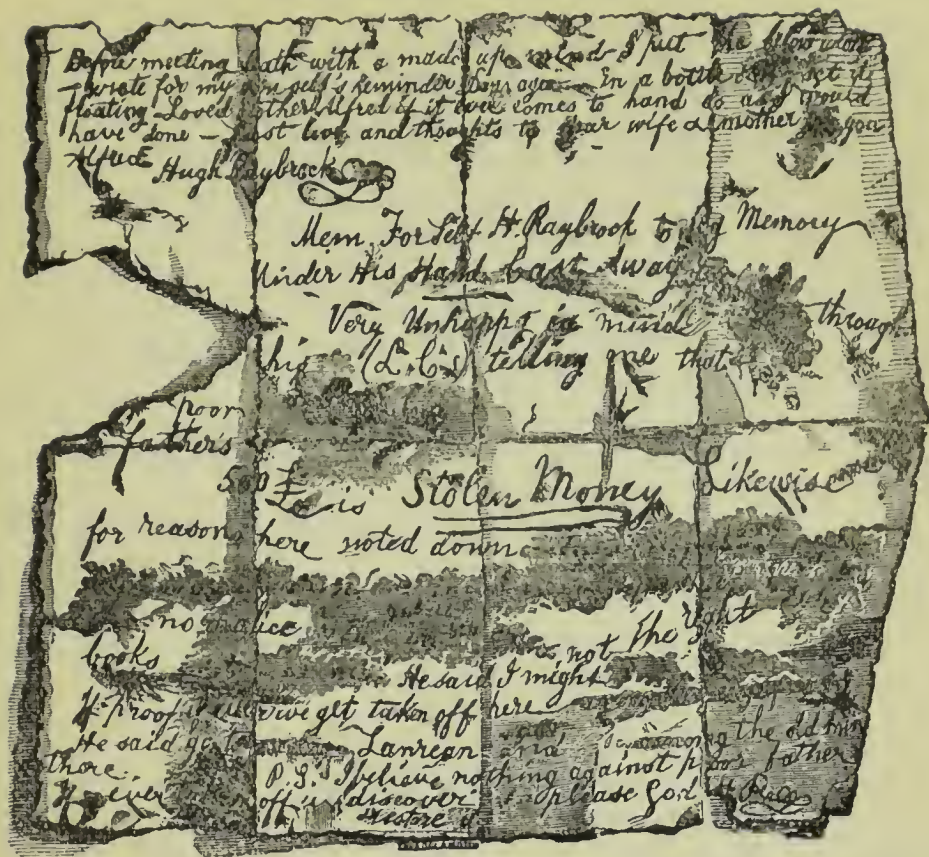 Before meeting death with a made up mind I put the below wrote
wrote for my own self's reminder Days ago In a bottle and set it
floating Loved brother Alfred if it ever comes to hand do as I would
have done — best love and thoughts to dear wife & mother you
Alfred
Hugh Raybrock
Mem. For Self H. Raybrock to Memory
Under His Hand Cast Away
Very Unhappy in mind through
his (L.C's) telling me that
poor
father's
500 £ is Stolen Money Likewise
for reasons here noted down
no malice
books is not the right
He said I might
If proof get taken off here
He said go to Lanrean and among the old men
there. P.S. I believe nothing against poor father
If ever off discover please God H Ray
restore